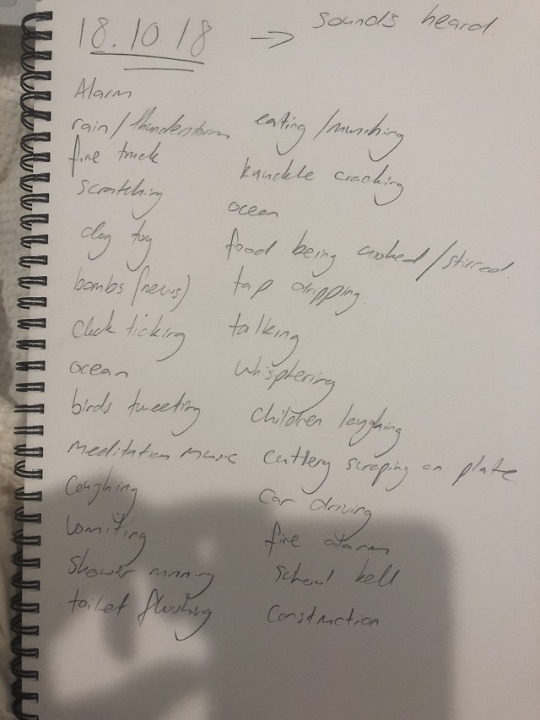 18.10.18 → sounds heard.
Alarm
rain/thunderstorm
fire truck
scratching
dog toy
bombs (news)
clock ticking
ocean
birds tweeting
meditation music
Coughing
Vomiting
shower running
toilet flushing
eating/munching
knuckle cracking
ocean
food being cooked/stirred.
tap dripping.
talking
whisptering
children laughing
Cutlery scraping on plate
Car driving
fire alarm
school bell
Construction